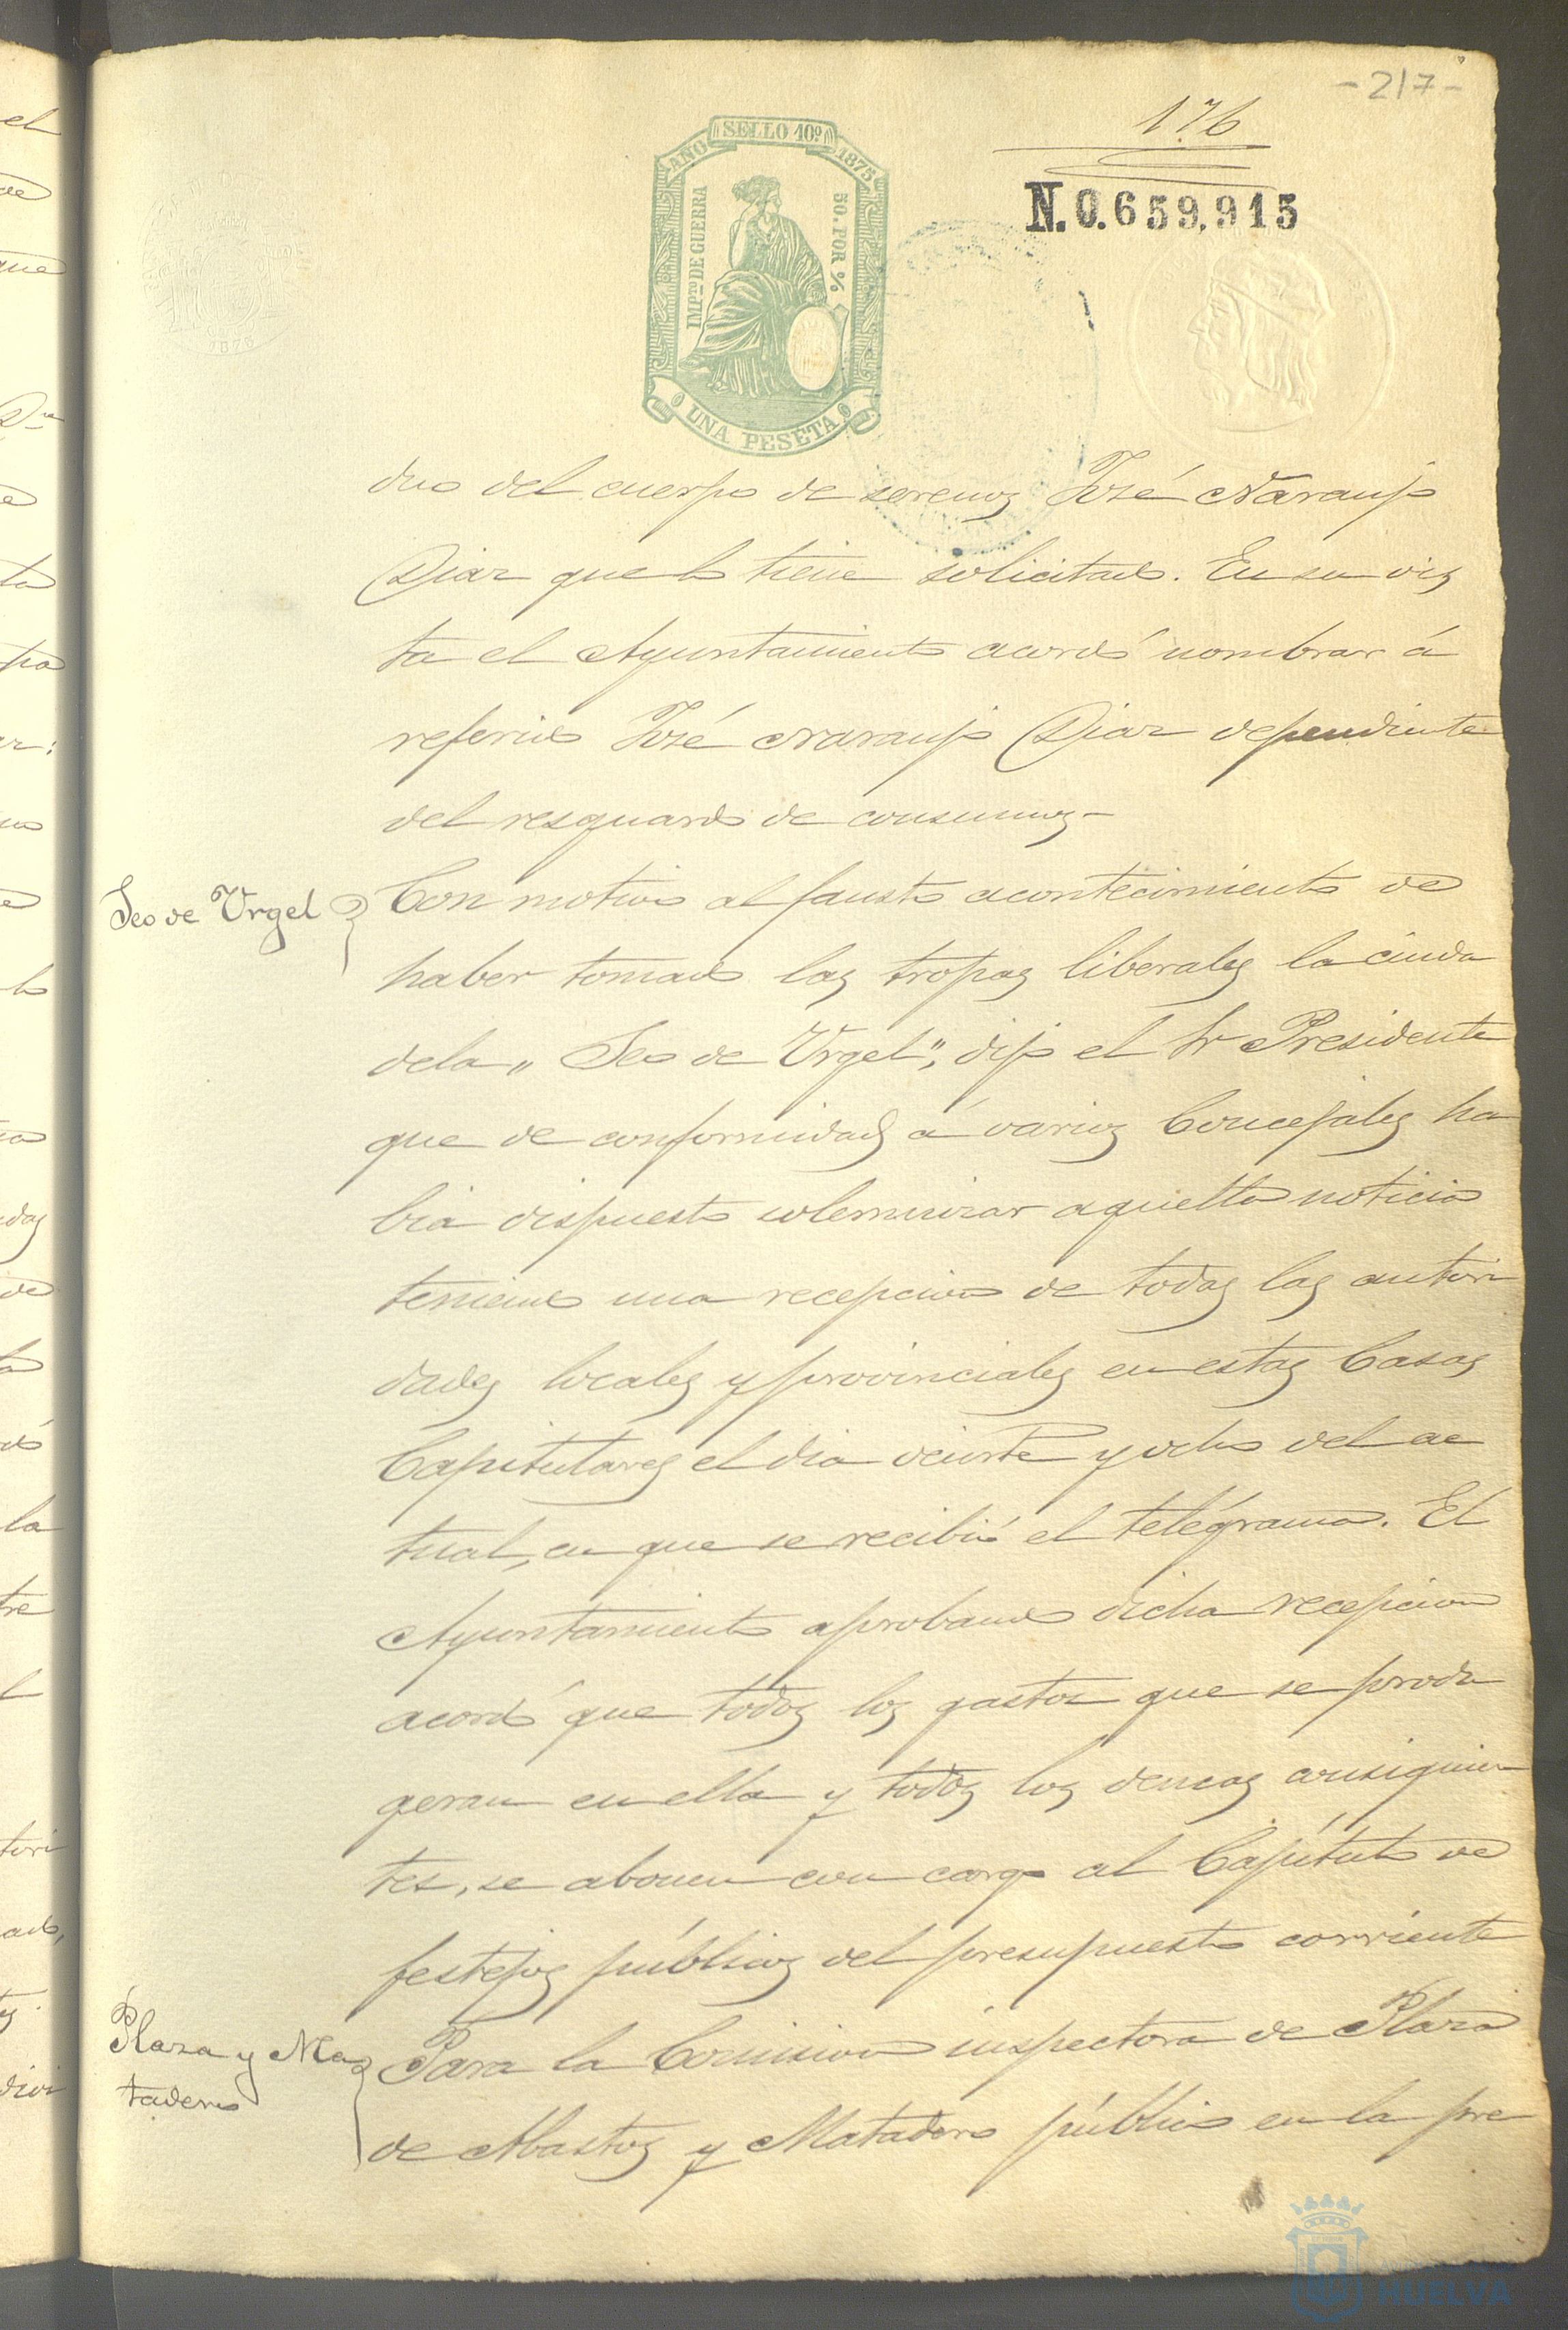 - 217 -
176
N. 0.659,915
SELLO 10º
AÑO 1875
IMPTO DE GUERRA
50. POR %
UNA PESETA
1876
duo del cuerpo de serenos José Naranjo
Diaz que lo tiene solicitado. En su vis
ta el Ayuntamiento acordó nombrar á
referido José Naranjo Diaz dependiente
del resguardo de consumos-
Seo de Urgel
Con motivo al fausto acontecimiento de
haber tomado las tropas liberales la ciuda
dela „ Seo de Urgel", dijo el Sr Presidente
que de conformidad á varios Concejales ha
bia dispuesto solemnizar aquella noticia
teniendo una recepcion de todas las autori
dades locales y provinciales en estas Casas
Capitulares el dia veinte y ocho del ac
tual, en que se recibió el telégrama. El
Ayuntamiento aprobando dicha recepcion
acordó que todos los gastos que se produ
geran en ella y todos los demas consiguien
tes, se abonen con cargo al Capítulo de
festejos públicos del presupuesto corriente
Plaza y Ma
tadero
Para la Comision inspectora de Plaza
de Abastos y Matadero público en la pre
HUELVA